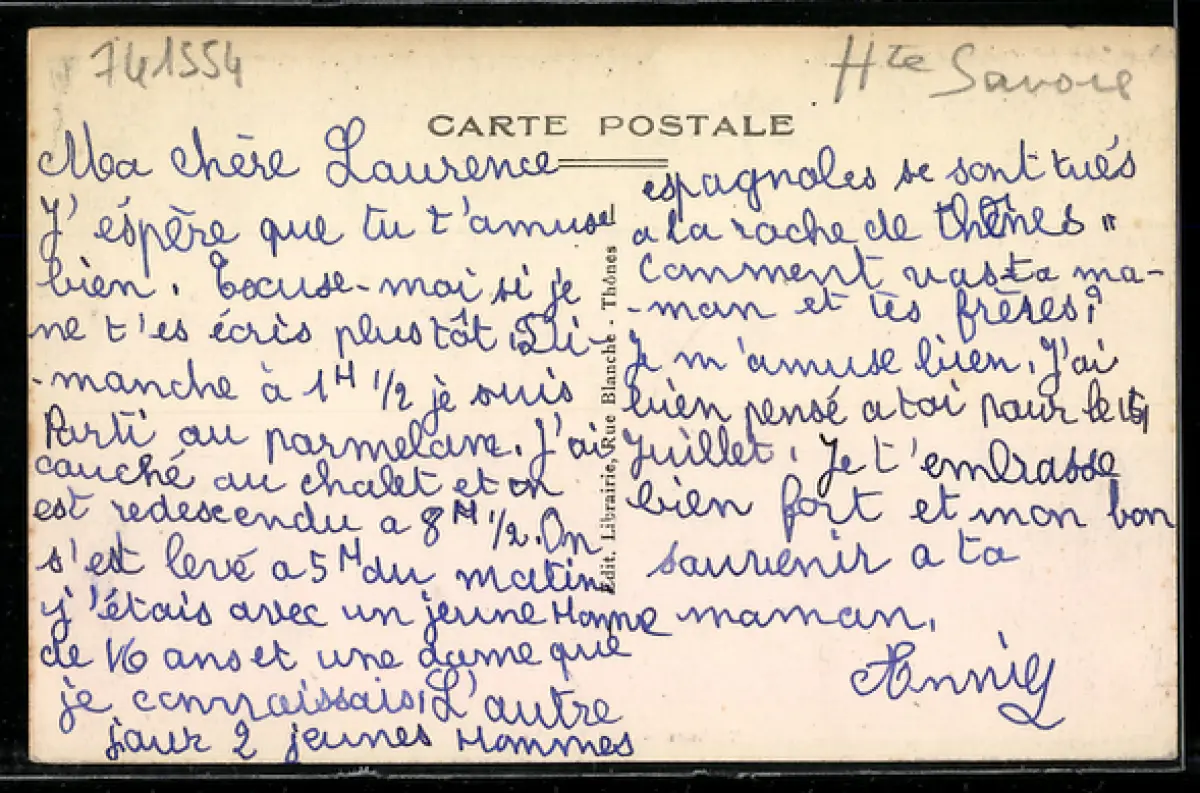 741554
Hte Savoie
CARTE POSTALE
Ma chère Laurence
J'éspère que tu t'amuse
bien. Excuse-moi si je
ne t'es écris plus tôt. Di-
-manche à 1H 1/2 je suis
Parti au parmelan. J'ai
couché au chalet et on
est redescendu a 8H 1/2. On
s'est levé a 5H du matin
j'étais avec un jeune Homme
de 16 ans et une dame que
je connaissais. L'autre
jour 2 jeunes Hommes
espagnoles se sont tués
a la roche de thônes "
Comment vas ta ma-
-man et tes frères?
Je m'amuse bien. J'ai
bien pensé a toi pour le 14
Juillet. Je t'embrasse
bien fort et mon bon
souvenir a ta
maman.
Annie
Edit. Librairie, Rue Blanche - Thônes